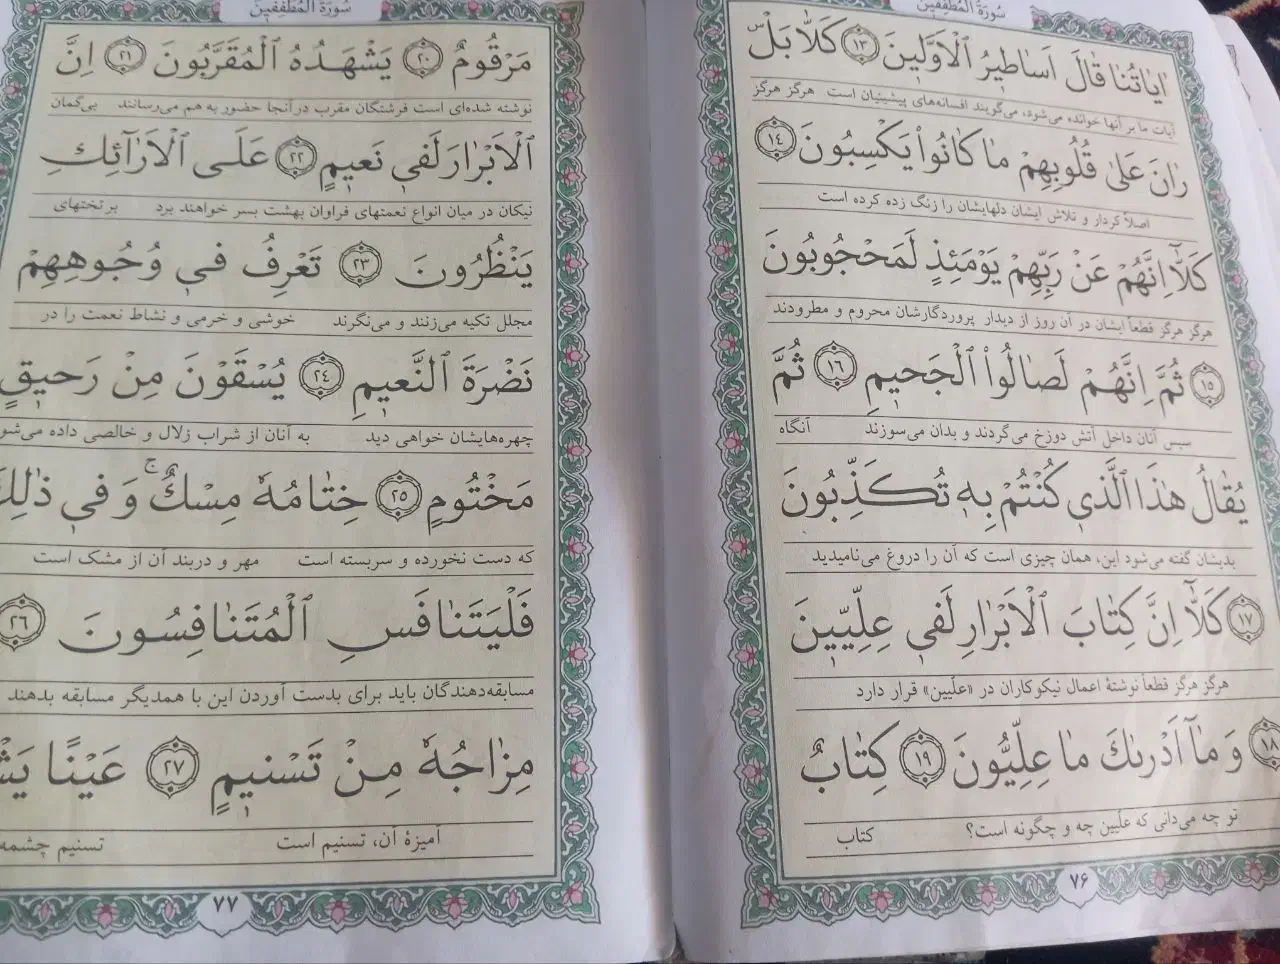 سُورَةُ الْمُطَفِّفِين
اٰيَاتُنٰا قٰالَ اَسٰاطيرُ الْاَوَّلينَ ﴿١٣﴾ كَلّٰا بَلْ س
آیات ما بر آنها خوانده می‌شود، می‌گویند افسانه‌های پیشینیان است هرگز هرگز
رٰانَ عَلىٰ قُلُوبِهِمْ مٰا كٰانُوا يَكْسِبُونَ ﴿١٤﴾
اصلاً کردار و تلاش ایشان دلهایشان را زنگ زده کرده است
كَلّٰٓا اِنَّهُمْ عَنْ رَبِّهِمْ يَوْمَئِذٍ لَمَحْجُوبُونَ
هرگز هرگز قطعاً ایشان در آن روز از دیدار پروردگارشان محروم و مطرودند
﴿١٥﴾ ثُمَّ اِنَّهُمْ لَصٰالُوا الْجَحيمِ ﴿١٦﴾ ثُمَّ
سپس آنان داخل آتش دوزخ می‌گردند و بدان می‌سوزند آنگاه
يُقٰالُ هٰذَا الَّذي كُنْتُمْ بِه۪ تُكَذِّبُونَ
بدیشان گفته می‌شود این، همان چیزی است که آن را دروغ می‌نامیدید
﴿١٧﴾ كَلّٰٓا اِنَّ كِتٰابَ الْاَبْرٰارِ لَفي عِلِّيّينَ
هرگز هرگز قطعاً نوشتهٔ اعمال نیکوکاران در «علّیین» قرار دارد
﴿١٨﴾ وَ مٰٓا اَدْرٰىكَ مٰا عِلِّيُّونَ ﴿١٩﴾ كِتٰابٌ
تو چه می‌دانی که علّیین چه و چگونه است؟ کتاب
۷۶
سُورَةُ الْمُطَفِّفِين
مَرْقُومٌ ﴿٢٠﴾ يَشْهَدُهُ الْمُقَرَّبُونَ ﴿٢١﴾ اِنَّ
نوشته شده‌ای است فرشتگان مقرب در آنجا حضور به هم می‌رسانند بی‌گمان
الْاَبْرٰارَ لَفي نَعيمٍ ﴿٢٢﴾ عَلَى الْاَرٰٓائِكِ
نیکان در میان انواع نعمتهای فراوان بهشت بسر خواهند برد بر تختهای
يَنْظُرُونَ ﴿٢٣﴾ تَعْرِفُ في وُجُوهِهِمْ
مجلل تکیه می‌زنند و می‌نگرند خوشی و خرمی و نشاط نعمت را در
نَضْرَةَ النَّعيمِ ﴿٢٤﴾ يُسْقَوْنَ مِنْ رَحيقٍ
چهره‌هایشان خواهی دید به آنان از شراب زلال و خالصی داده می‌شو
مَخْتُومٍ ﴿٢٥﴾ خِتٰامُهُ مِسْكٌ ج وَ في ذٰلِكَ
که دست نخورده و سربسته است مهر و دربند آن از مشک است
فَلْيَتَنٰافَسِ الْمُتَنٰافِسُونَ ﴿٢٦﴾
مسابقه‌دهندگان باید برای بدست آوردن این با همدیگر مسابقه بدهند
مِزٰاجُهُ مِنْ تَسْنيمٍ ﴿٢٧﴾ عَيْنًا يَشْ
آمیزهٔ آن، تسنیم است تسنیم چشمه
۷۷